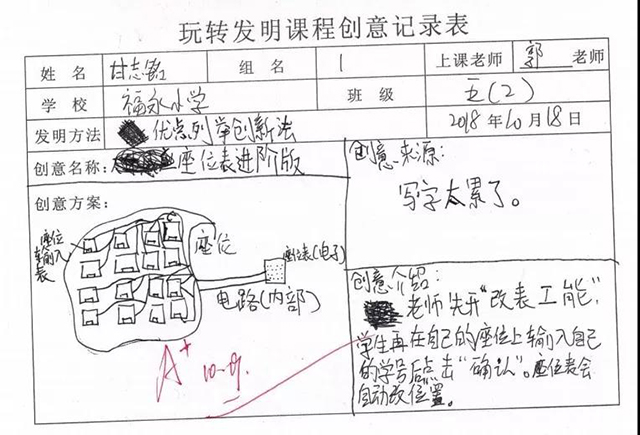 玩转发明课程创意记录表
姓名 甘志铭 组名 1 上课老师 郭 老师
学校 福永小学 班级 五(2)
发明方法 优点列举创新法 2018年10月18日
创意名称: 座位表进阶版
创意来源:
写字太累了。
创意方案:
座位
输入
表
座位
座位表(电子)
电路(内部)
A+
10-19.
创意介绍:
老师先开“改表工能”,
学生再在自己的座位上输入自己
的学号后点击“确认”。座位表会
自动改位置。